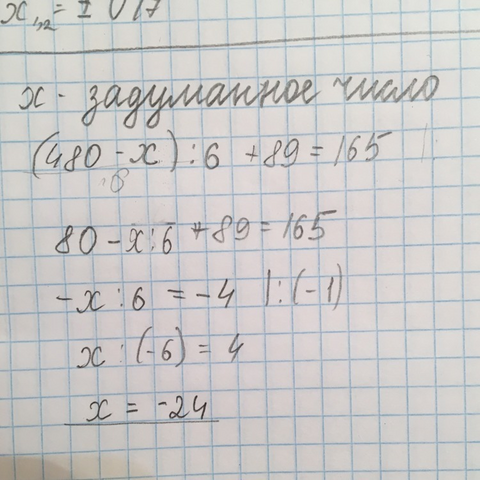 x - задуманное число
(480 - x) : 6 + 89 = 165
6
80 - x : 6 + 89 = 165
-x : 6 = -4 | : (-1)
x : (-6) = 4
x = -24